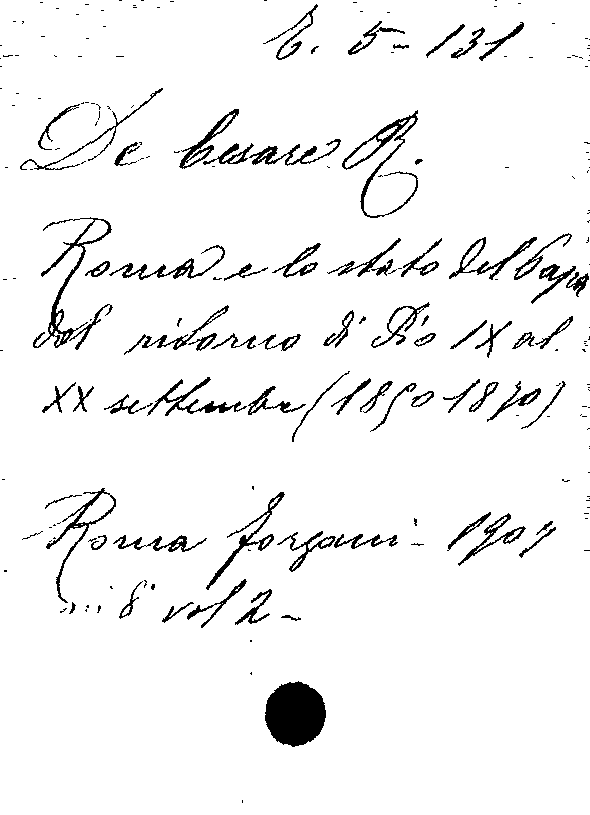 E. 5 - 131
De Cesare R.
Roma e lo stato del Papa
dal ritorno di Pio IX al
XX settembre (1850 1870)
Roma Forzani - 1907
in 8° vol 2 -